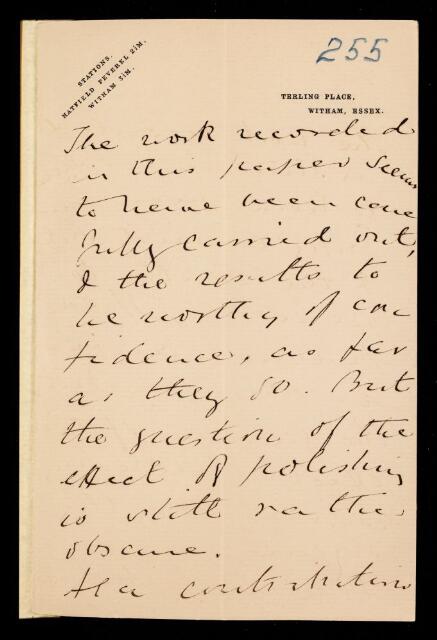 255
STATIONS.
HATFIELD PEVEREL 2/M.
WITHAM 3/M.
TERLING PLACE,
WITHAM, ESSEX.
The work recorded
in this paper seems
to have been care
fully carried out,
& the results to
be worthy of con
fidence, as far
as they go. But
the question of the
effect of polishing
is still rather
obscure.
As a contribution